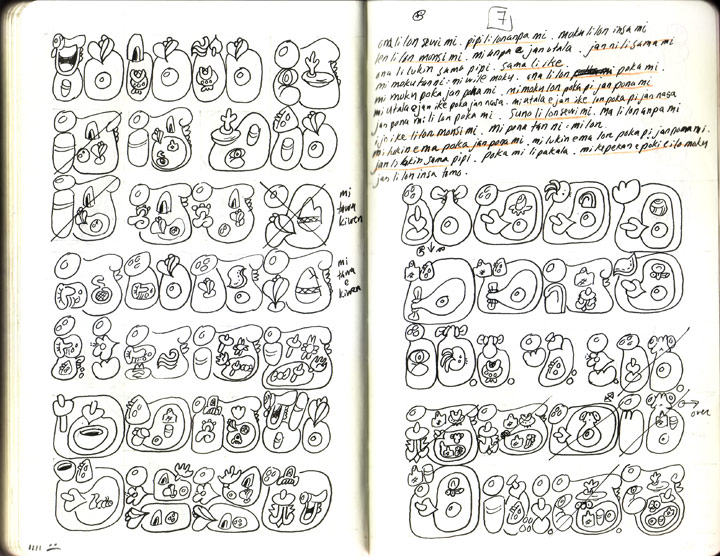 mi
tawa
kiwen
mi
tawa
e
kiwen
7
ona li lon sewi mi . pipi li lon anpa mi . moku li lon insa mi
len li lon monsi mi . mi anpa e jan utala . jan ni li sama mi
ona li lukin sama pipi . sama li ike.
mi moku tan ni : mi wile moku . ona li lon poka mi .
mi moku poka jan poka mi . mi moku lon poka pi jan pona mi
mi utala e jan ike poka jan nasa . mi utala e jan ike lon poka pi jan nasa
jan pona mi li lon poka mi . Suno li lon sewi mi. Ma li lon anpa mi
ijo ike li lon monsi mi . mi pona tan ni : mi lon
mi lukin e ma poka jan pona mi . mi lukin e ma lon poka pi jan pona mi .
jan li lukin sama pipi . poka mi li pakala . mi kepeken e poki e ilo moku
jan li lon insa tomo .
over